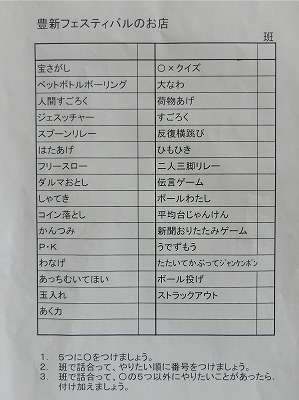 豊新フェスティバルのお店
班
宝さがし
ペットボトルボーリング
人間すごろく
ジェスッチャー
スプーンリレー
はたあげ
フリースロー
ダルマおとし
しゃてき
コイン落とし
かんつみ
P・K
わなげ
あっちむいてほい
玉入れ
あく力
〇×クイズ
大なわ
荷物あげ
すごろく
反復横跳び
ひもひき
二人三脚リレー
伝言ゲーム
ボールわたし
平均台じゃんけん
新聞おりたたみゲーム
うでずもう
たたいてかぶってジャンケンポン
ボール投げ
ストラックアウト
1. 5つに〇をつけましょう。
2. 班で話合って、やりたい順に番号をつけましょう。
3. 班で話合って、〇の5つ以外にやりたいことがあったら、
付け加えましょう。